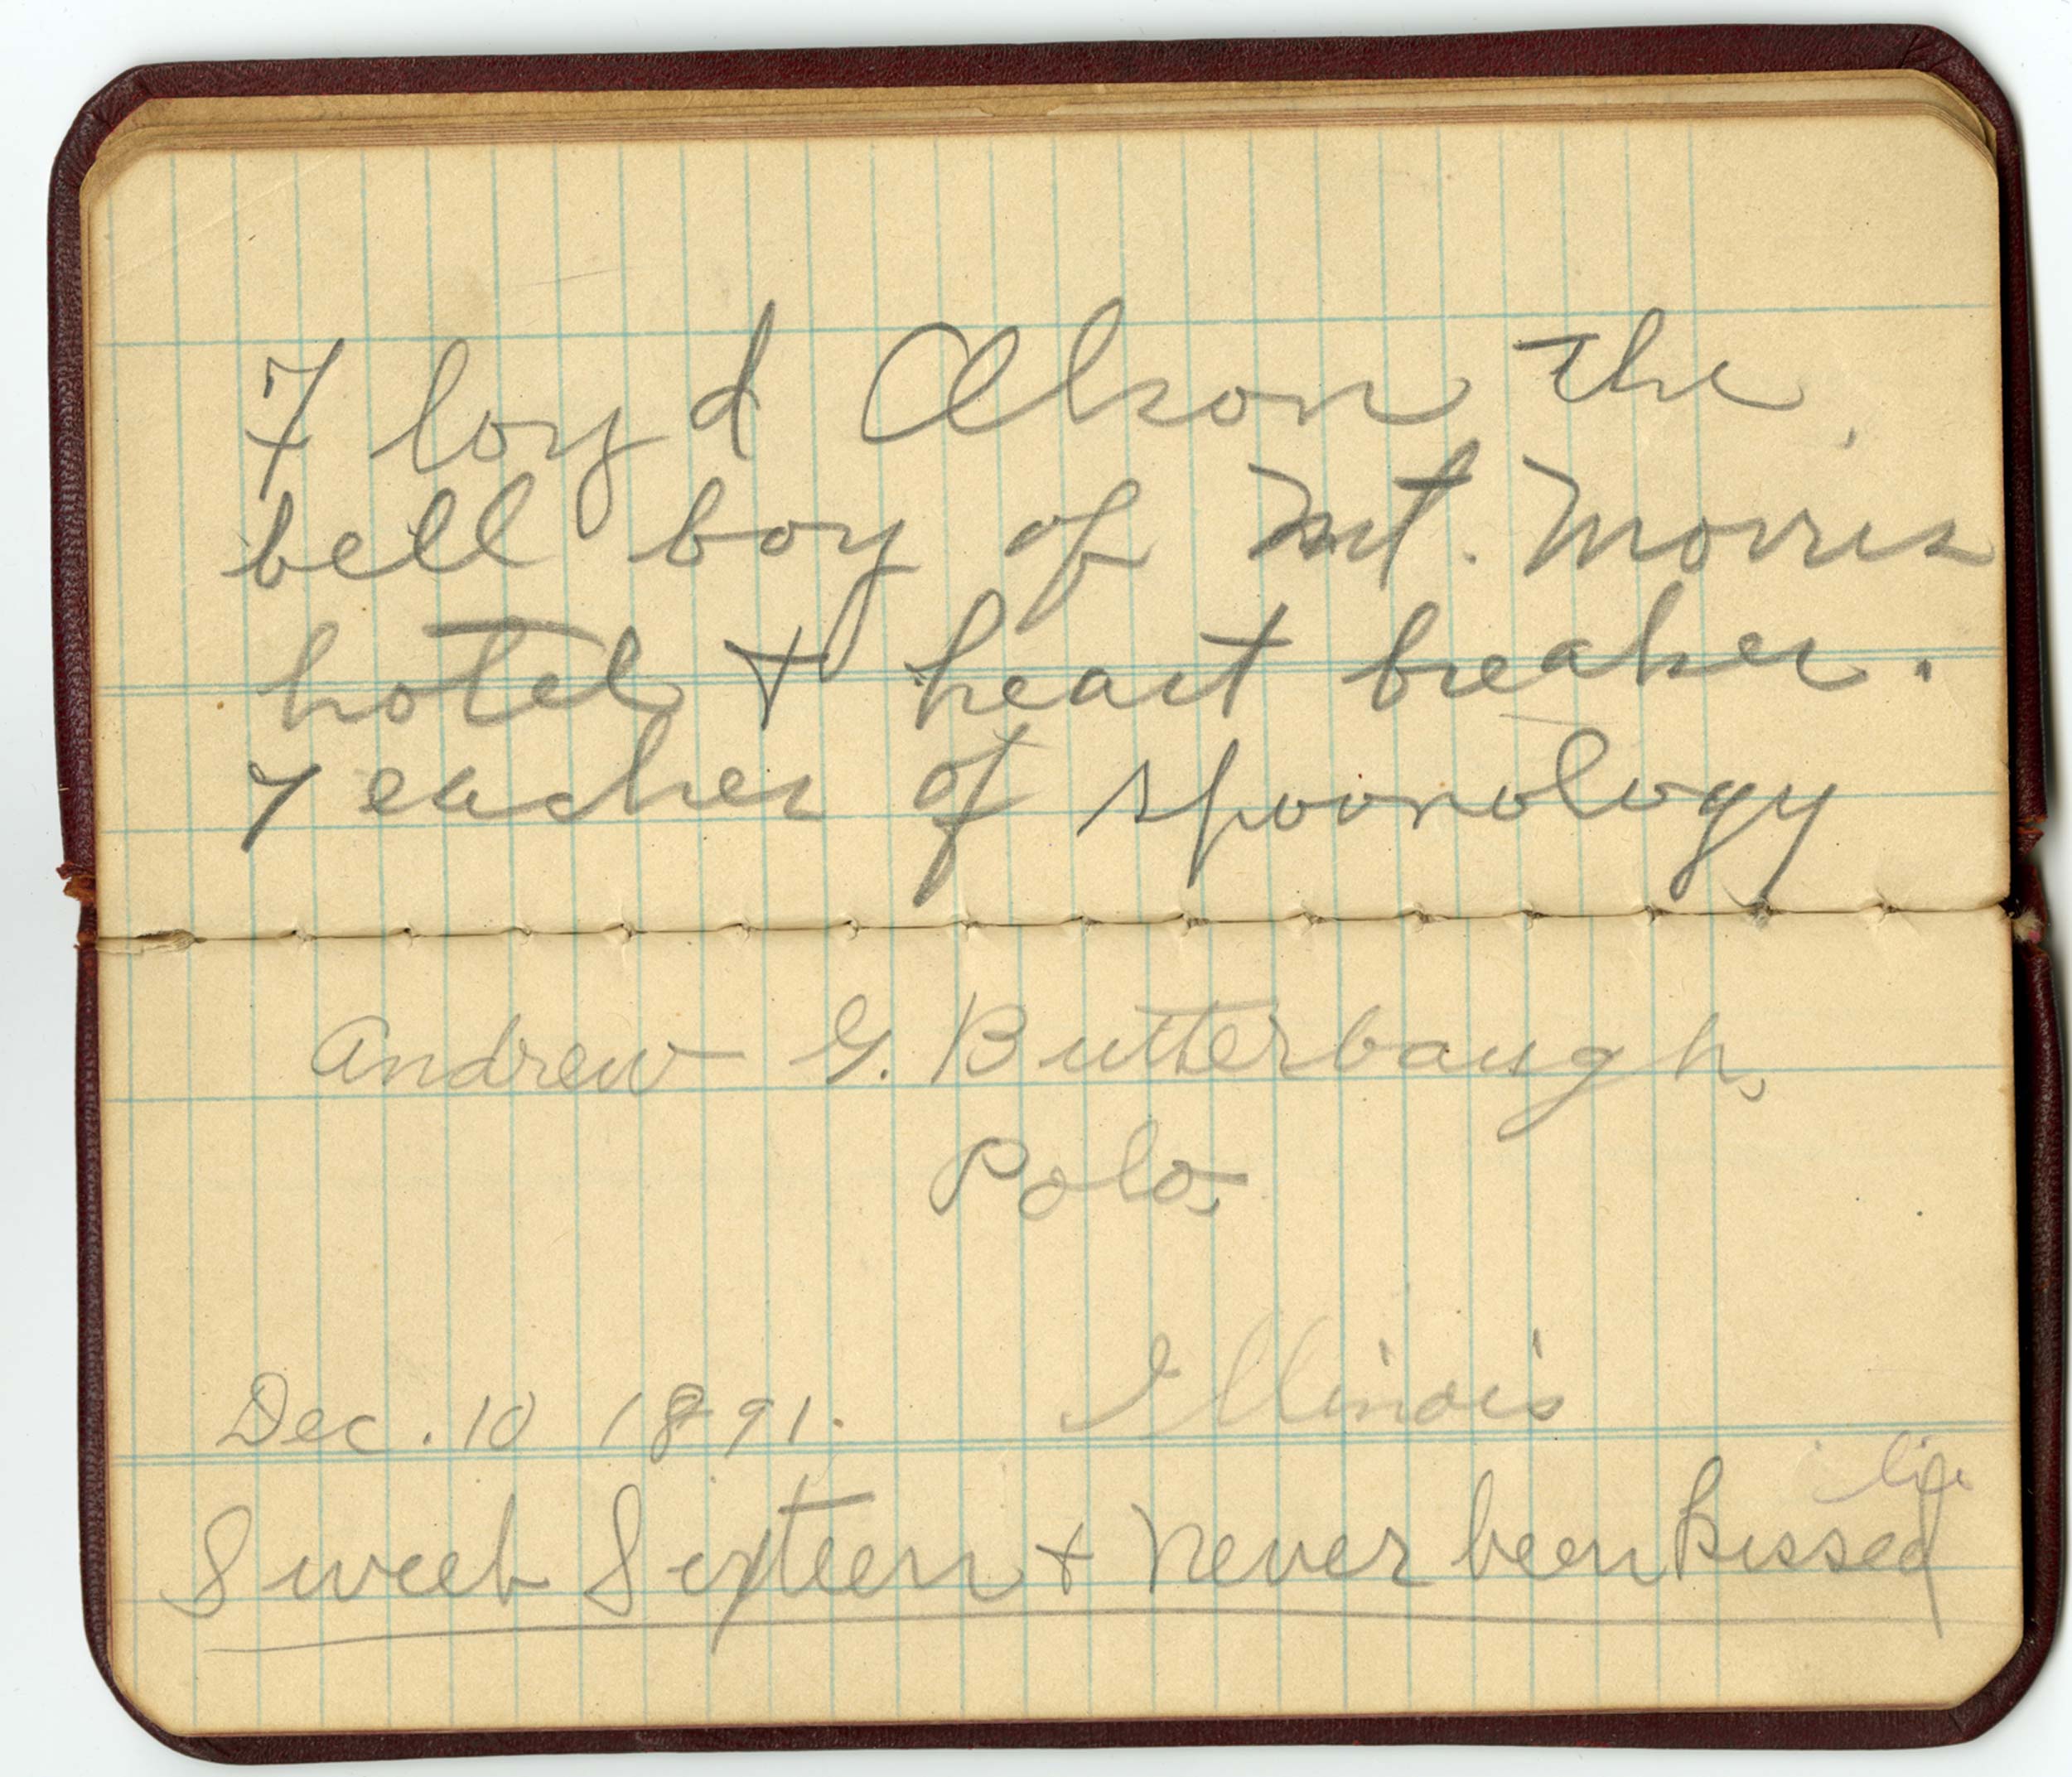 Floyd Olson the
bell boy of Mt. Morris
hotel + heart breaker.
Teacher of spoonology
Andrew G. Butterbaugh,
Polo,
Illinois
Dec. 10 1891.
Sweet Sixteen + Never been Kissed